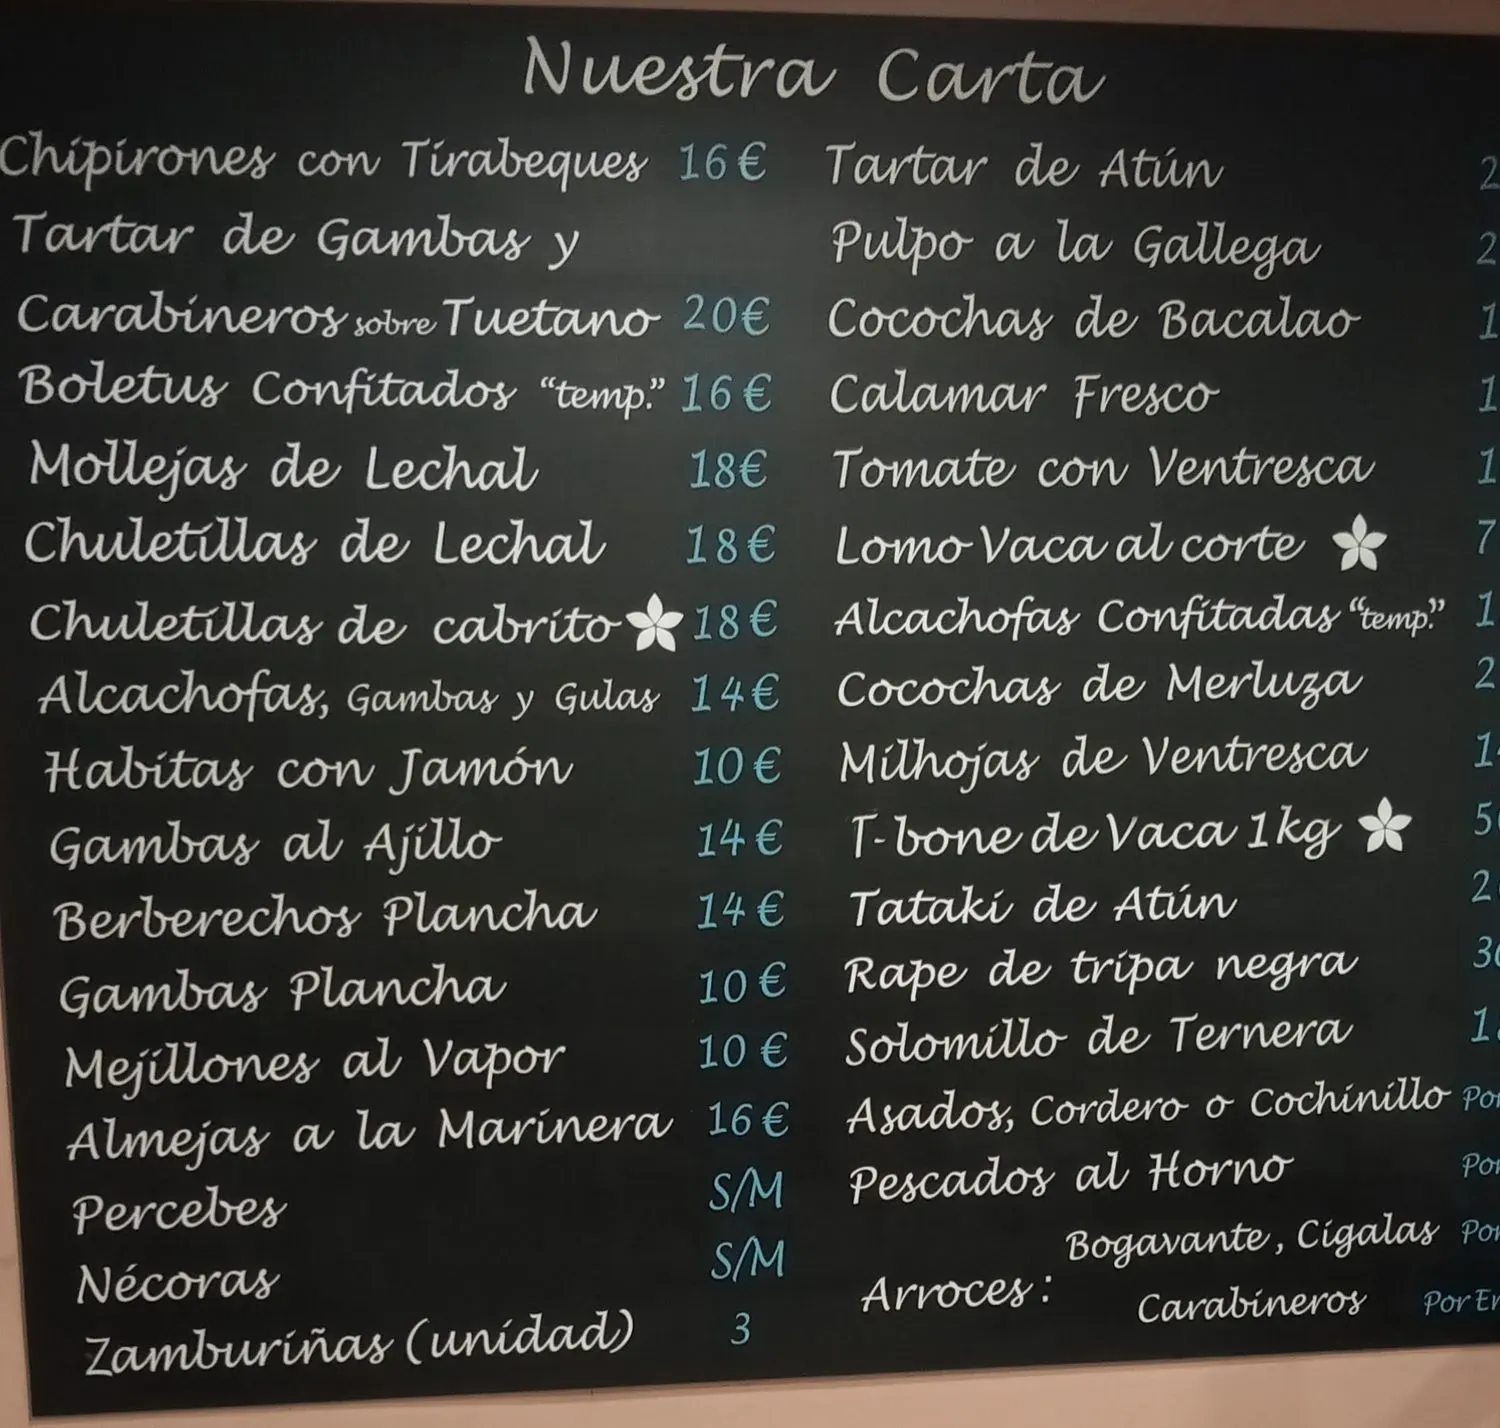 Nuestra Carta
Chipirones con Tirabeques 16€
Tartar de Gambas y
Carabineros sobre Tuetano 20€
Boletus Confitados "temp." 16€
Mollejas de Lechal 18€
Chuletillas de Lechal 18€
Chuletillas de cabrito 18€
Alcachofas, Gambas y Gulas 14€
Habitas con Jamón 10€
Gambas al Ajillo 14€
Berberechos Plancha 14€
Gambas Plancha 10€
Mejillones al Vapor 10€
Almejas a la Marinera 16€
Percebes S/M
Nécoras S/M
Zamburiñas (unidad) 3
Tartar de Atún
Pulpo a la Gallega
Cocochas de Bacalao
Calamar Fresco
Tomate con Ventresca
Lomo Vaca al corte
Alcachofas Confitadas "temp."
Cocochas de Merluza
Milhojas de Ventresca
T-bone de Vaca 1kg
Tataki de Atún
Rape de tripa negra
Solomillo de Ternera
Asados, Cordero o Cochinillo
Pescados al Horno
Arroces: Bogavante, Cigalas
Carabineros Por